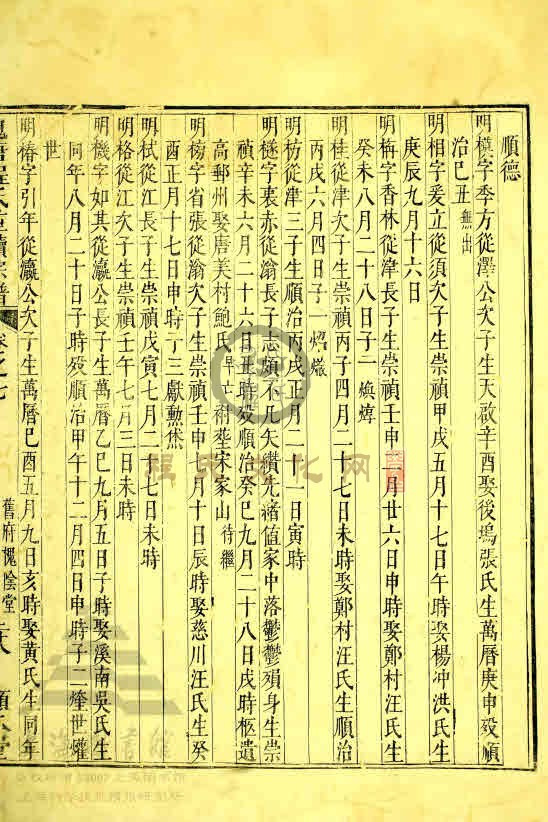 順德
明模字季方從澤公次子生天啟辛酉娶後塢張氏生萬曆庚申殁順
治己丑無出
明相字爰立從須次子生崇禎甲戌五月十七日午時娶楊冲洪氏生
庚辰九月十六日
明梅字香林從津長子生崇禎壬申二月廿六日申時娶鄭村汪氏生
癸未八月二十八日子二煥煒
明桂從津次子生崇禎丙子四月二十七日未時娶鄭村汪氏生順治
丙戌六月四日子一炤
明枋從津三子生順治丙戌正月二十一日寅時
明檖字裏赤從滃長子志頗不凡矢纘先緒值家中落鬱鬱殞身生崇
禎辛未六月二十六日丑時殁順治癸巳九月二十八日戌時柩遺
高郵州娶唐美村鮑氏早亡祔塟宋家山待繼
明楴字省張從滃次子生崇禎壬申七月十日辰時娶慈川汪氏生癸
酉正月十七日申時子三獻勲𤋮
明栻從江長子生崇禎戊寅七月二十七日未時
明格從江次子生崇禎壬午七月三日未時
明機字如其從瀛公長子生萬曆乙巳九月五日子時娶溪南吳氏生
同年八月二十日子時殁順治甲午十二月四日申時子二煃世爟
世
明椿字引年從瀛公次子生萬曆己酉五月九日亥時娶黃氏生同年
宗譜
卷之七
舊府槐陰堂
程氏文化网